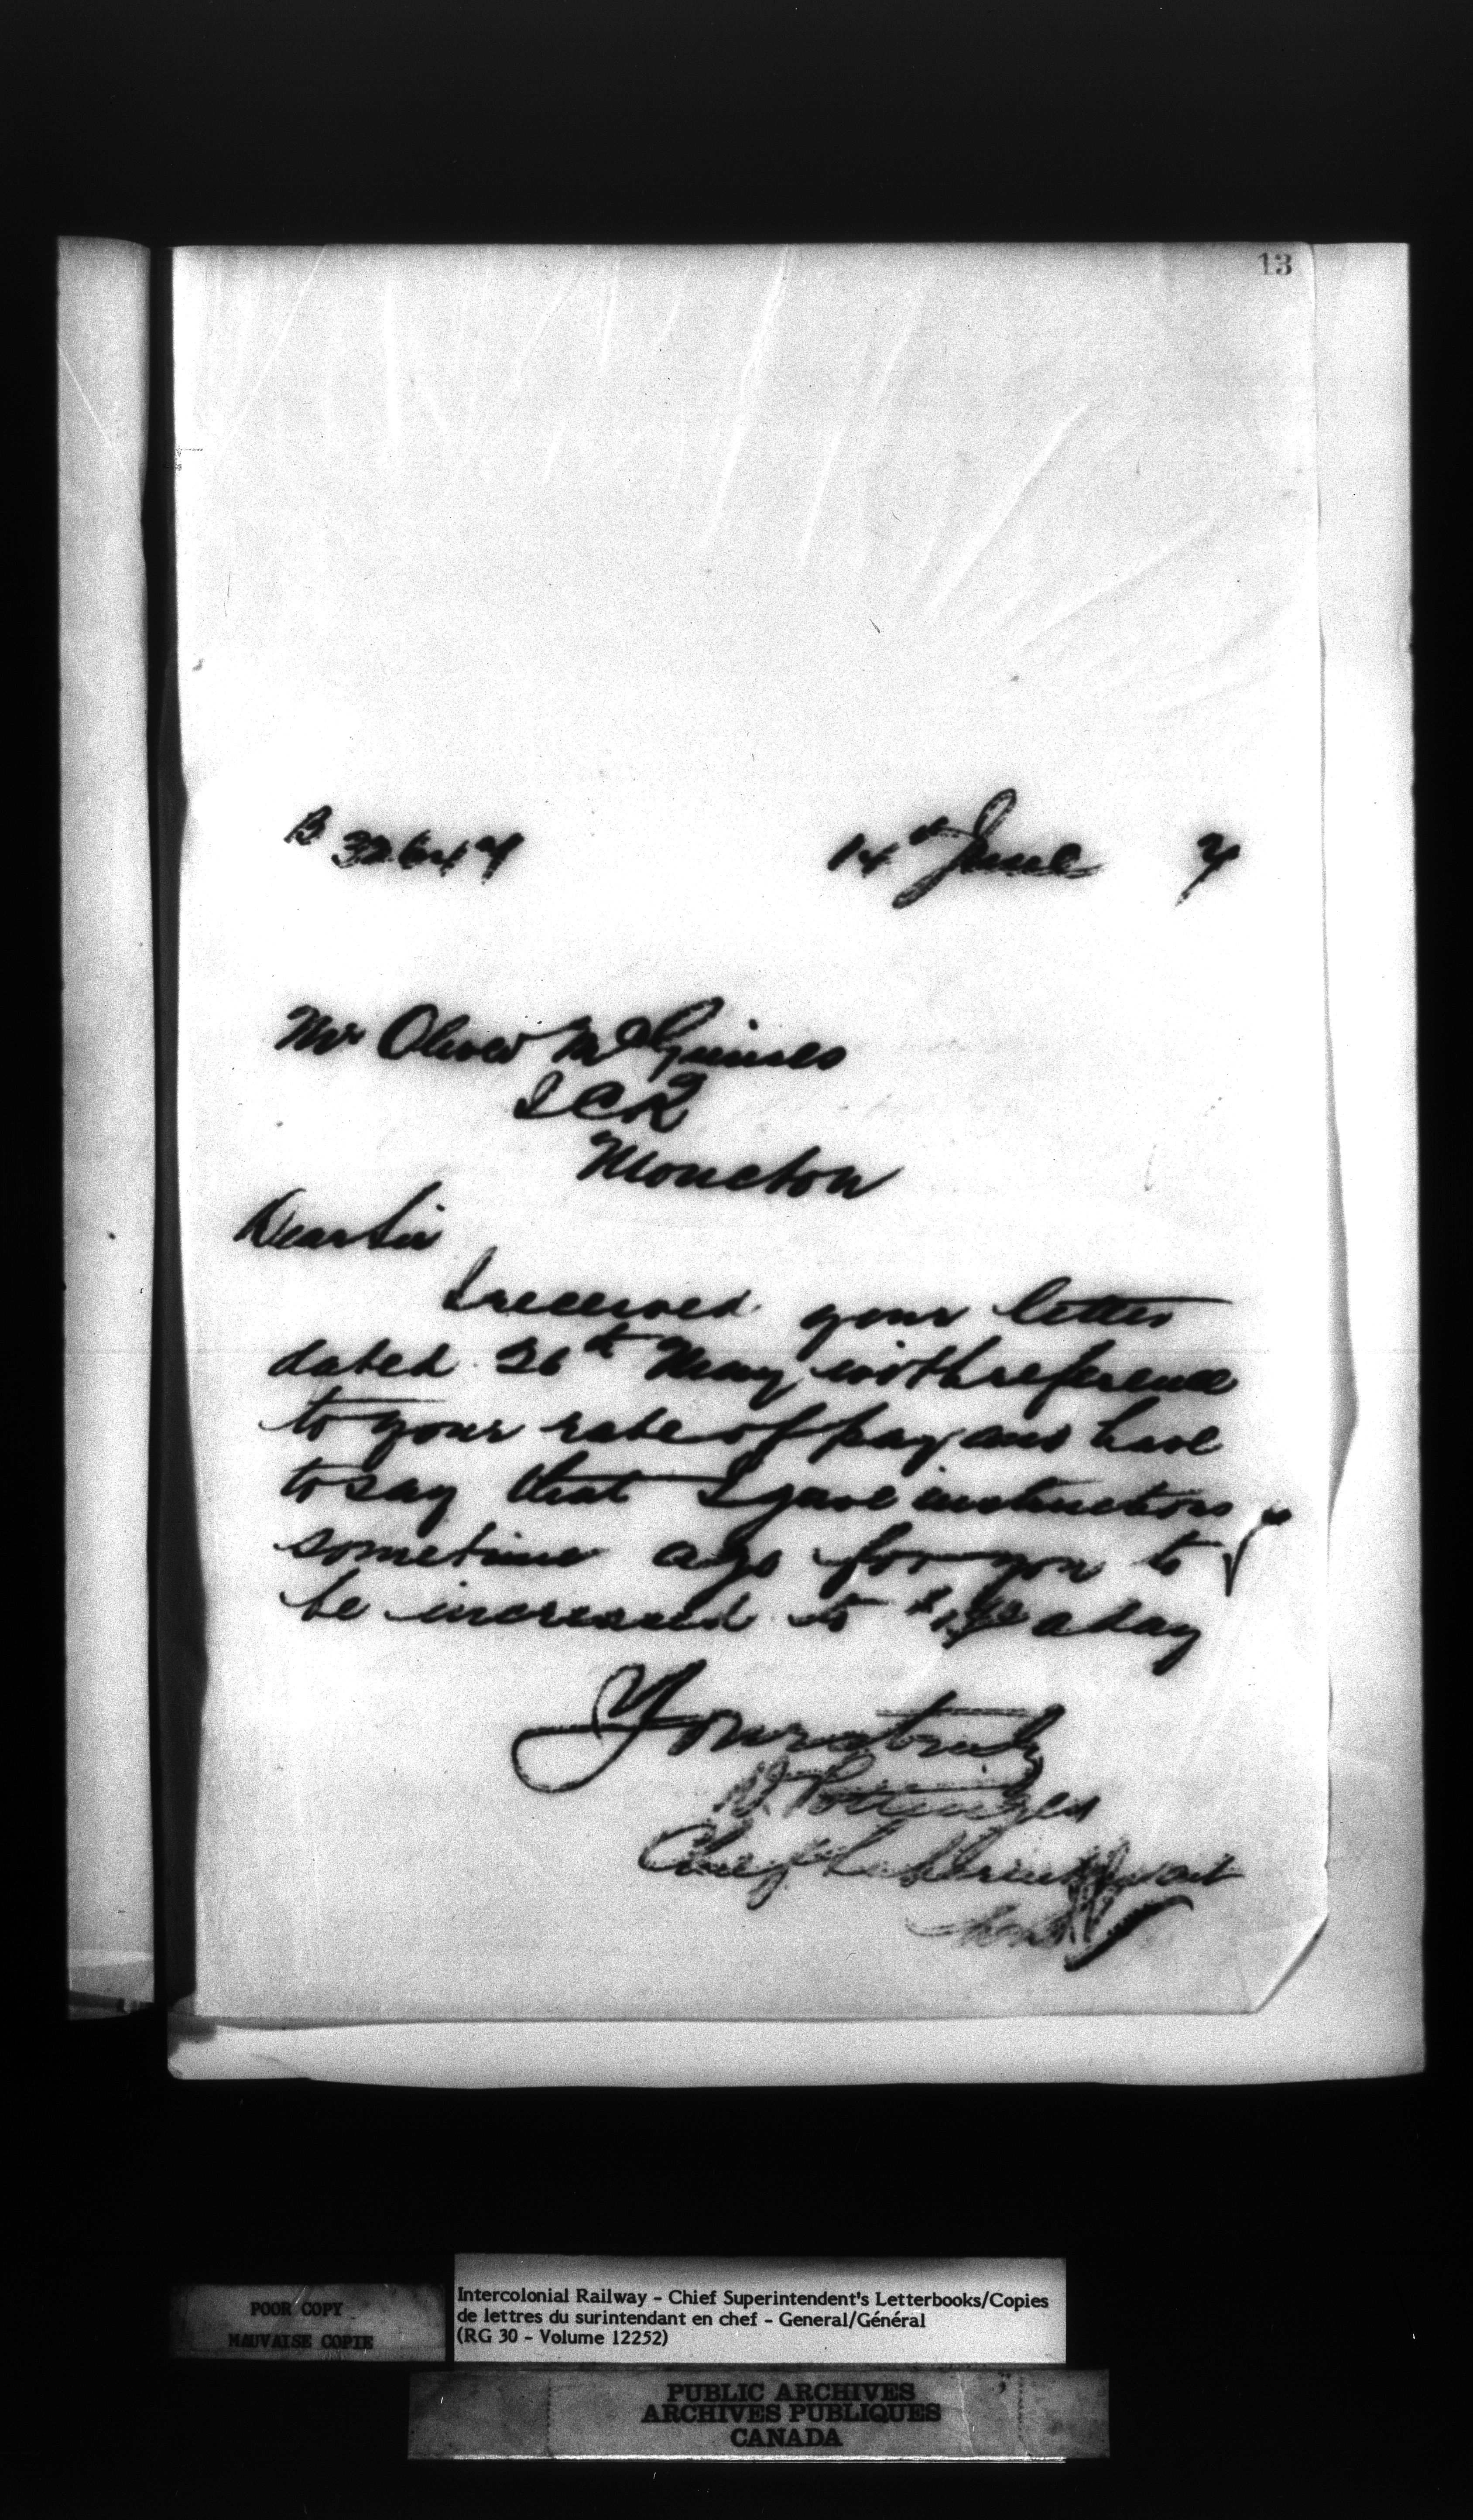 13
B 32644 14th June 7
Mr Oliver McGuiness
ICR
Moncton
Dear Sir
I received your letter
dated 26th May with reference
to your rate of pay and have
to say that I gave instructions
sometime ago for you to
be increased to a day
Yours truly
D. Pottinger
Chief Superintendent
POOR COPY
MAUVAISE COPIE
Intercolonial Railway - Chief Superintendent's Letterbooks/Copies
de lettres du surintendant en chef - General/Général
(RG 30 - Volume 12252)
PUBLIC ARCHIVES
ARCHIVES PUBLIQUES
CANADA